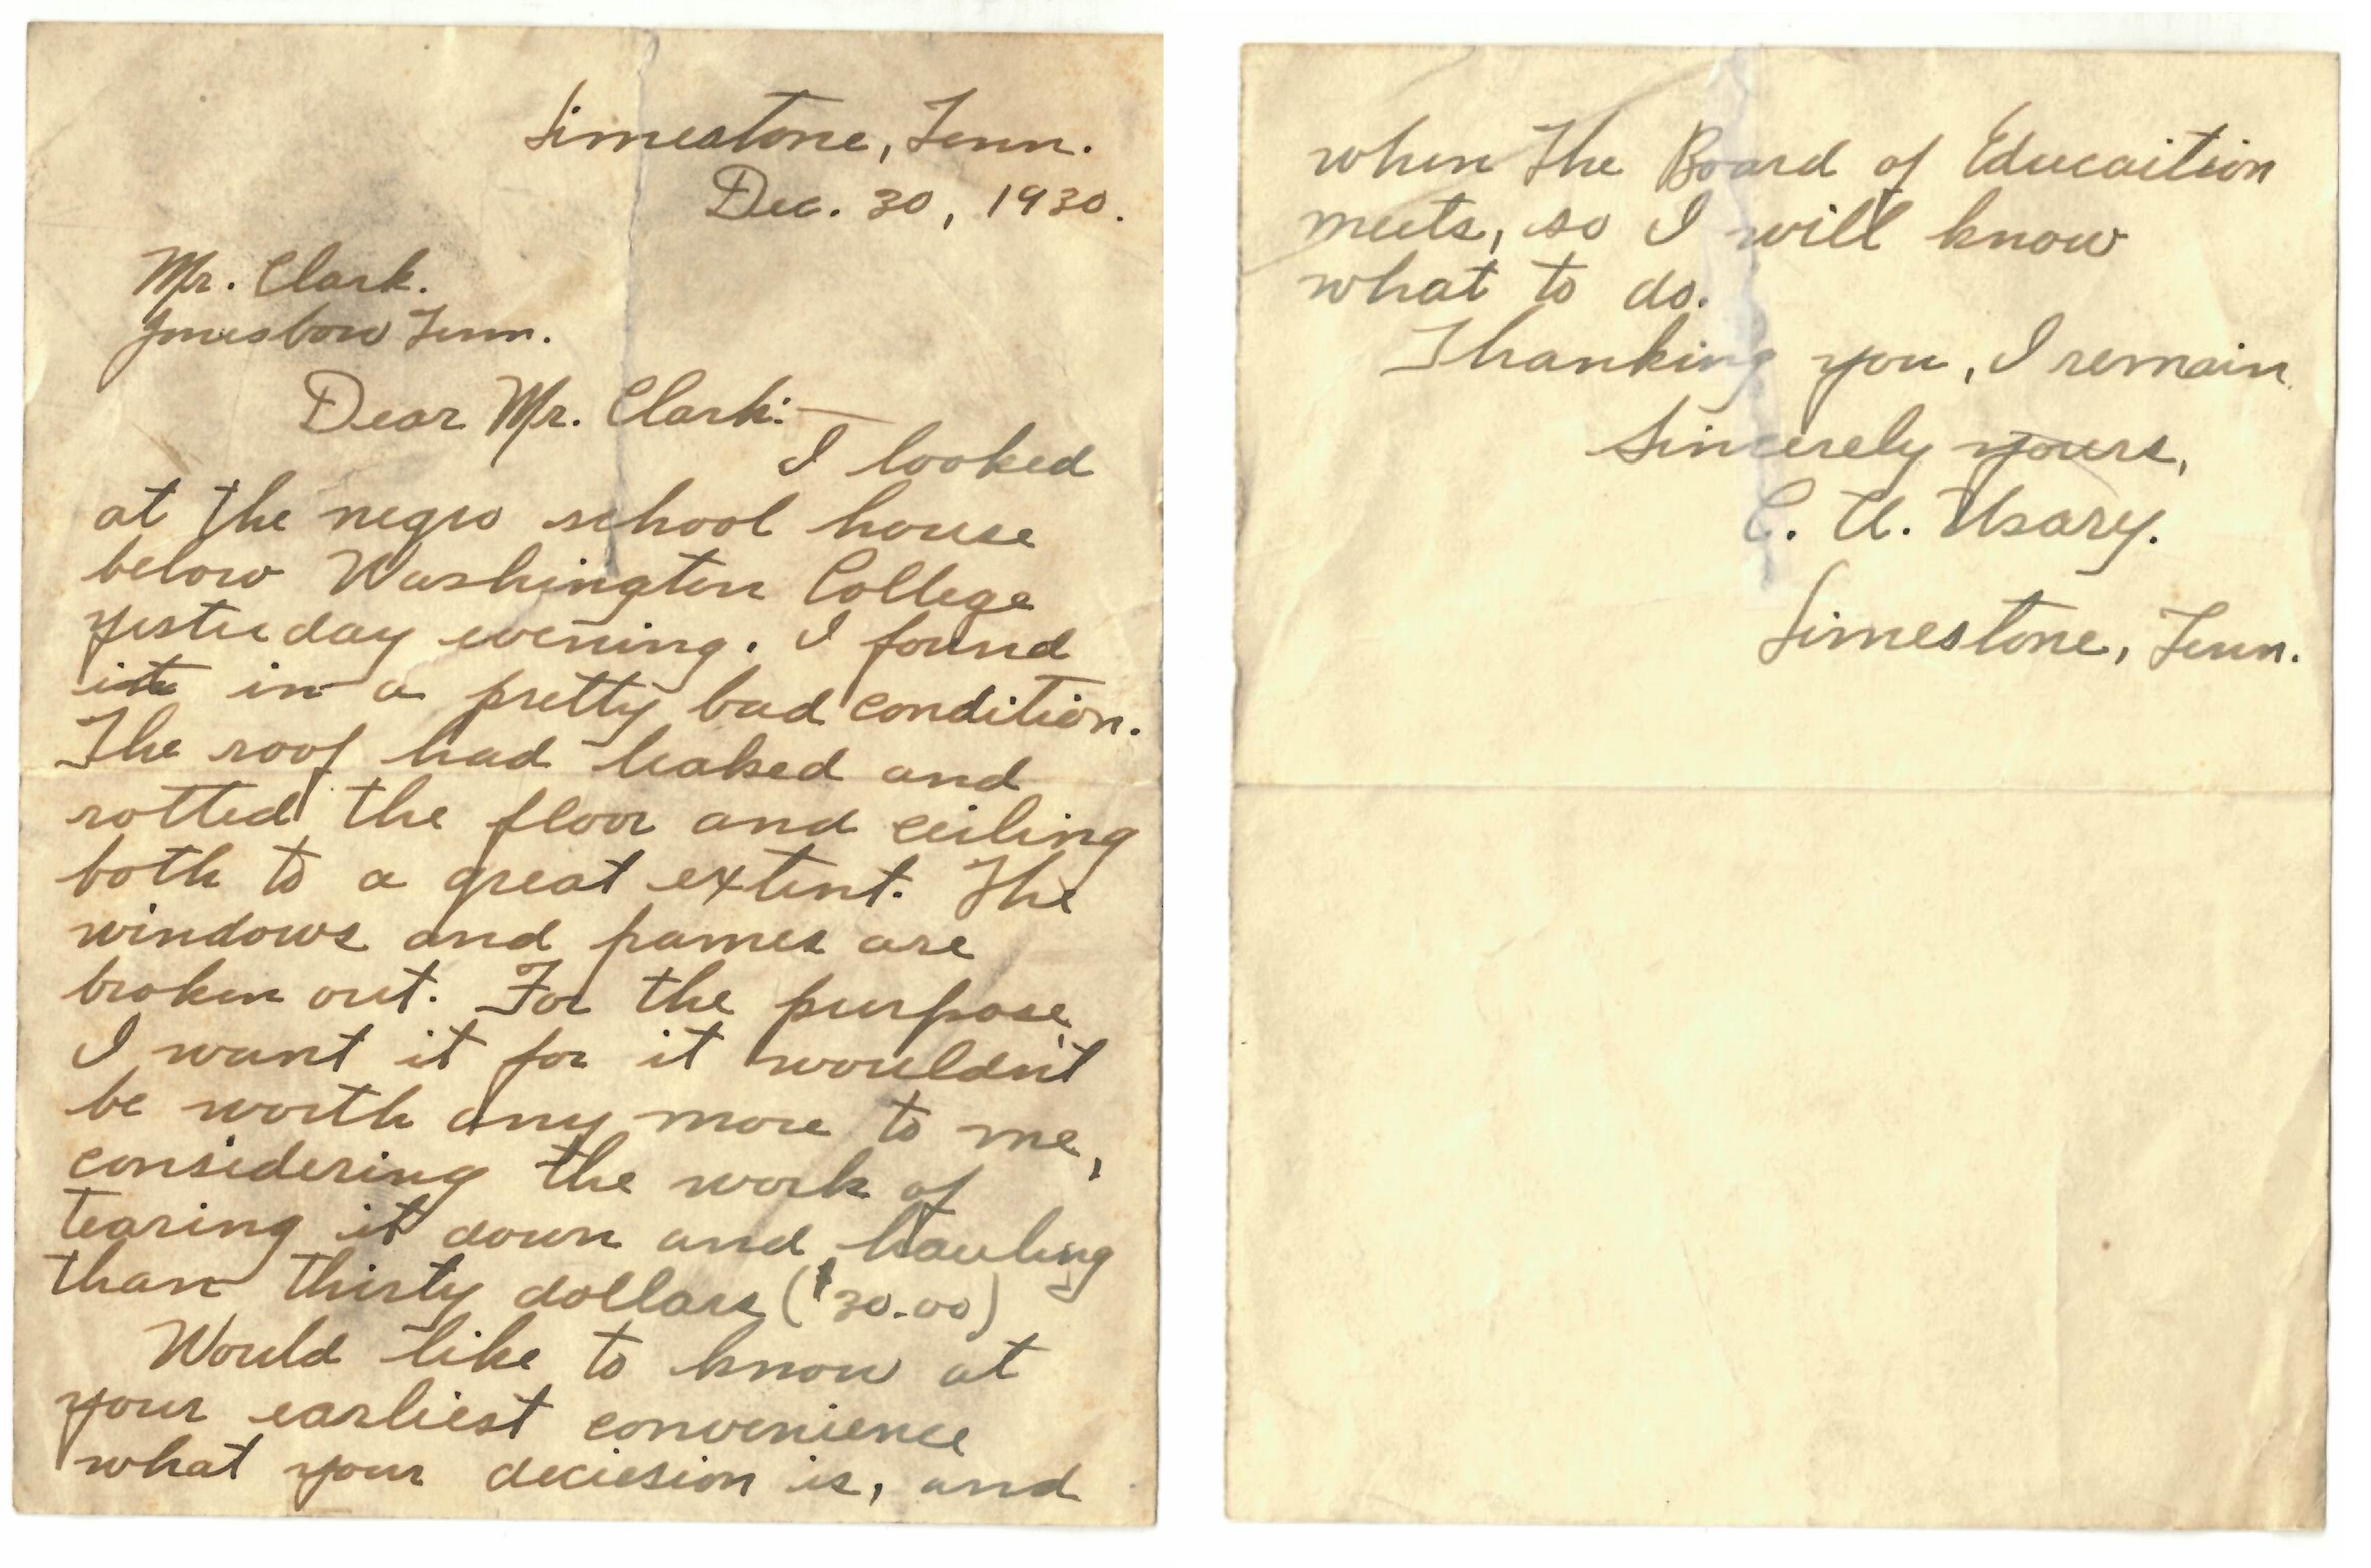 Limestone, Tenn.
Dec. 30, 1930.
Mr. Clark.
Jonesboro Tenn.
Dear Mr. Clark:—
I looked
at the negro school house
below Washington College
yesterday evening. I found
it in a pretty bad condition.
The roof had leaked and
rotted the floor and ceiling
both to a great extent. The
windows and frames are
broken out. For the purpose
I want it for it wouldn't
be worth any more to me,
considering the work of
tearing it down and hauling
than thirty dollars ($30.00)
Would like to know at
your earliest convenience
what your deciesion is, and
when the Board of Educaition
meets, so I will know
what to do.
Thanking you, I remain
Sincerely yours,
C. A. Usary.
Limestone, Tenn.